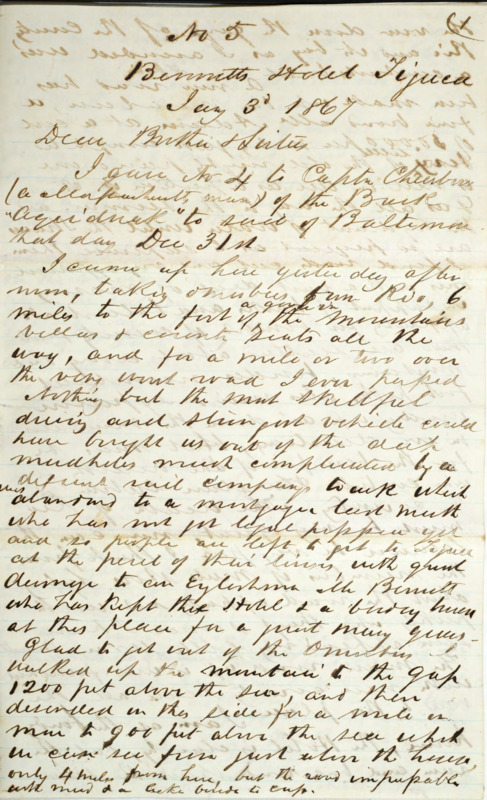 No 5
Bennetts Hotel Tijuca
Jany 3d 1867
Dear Brother & Sister
I gave No 4 to Captn
(a man) of the Bark
" " to sail of Baltimore
that day Dec 31st
I came up here yesterday after
noon, taking omnibus from Rio, 6
miles to the foot of the mountains
villas & country seats all the
way, and for a mile or two over
the very worst road I ever passed
Nothing but the most skillful
driving and strongest vehicle could
have brought us out of the deep
mudholes much complicated by a
defunct rail company's work which
was abandoned to a mortgagee last month
who has not got legal possession yet
and so people are left to get to Tijuca
at the peril of their lives, with great
damage to an Englishman Mr Bennett
who has kept this Hotel & a boarding house
at this place for a great many years -
Glad to get out of the Omnibus I
walked up the mountain to the Gap
1200 feet above the sea, and then
descended on this side for a mile or
more to 900 feet above the sea which
we can see from just above the house,
only 4 miles from here, but the road impassable
with mud & a besides to cross.